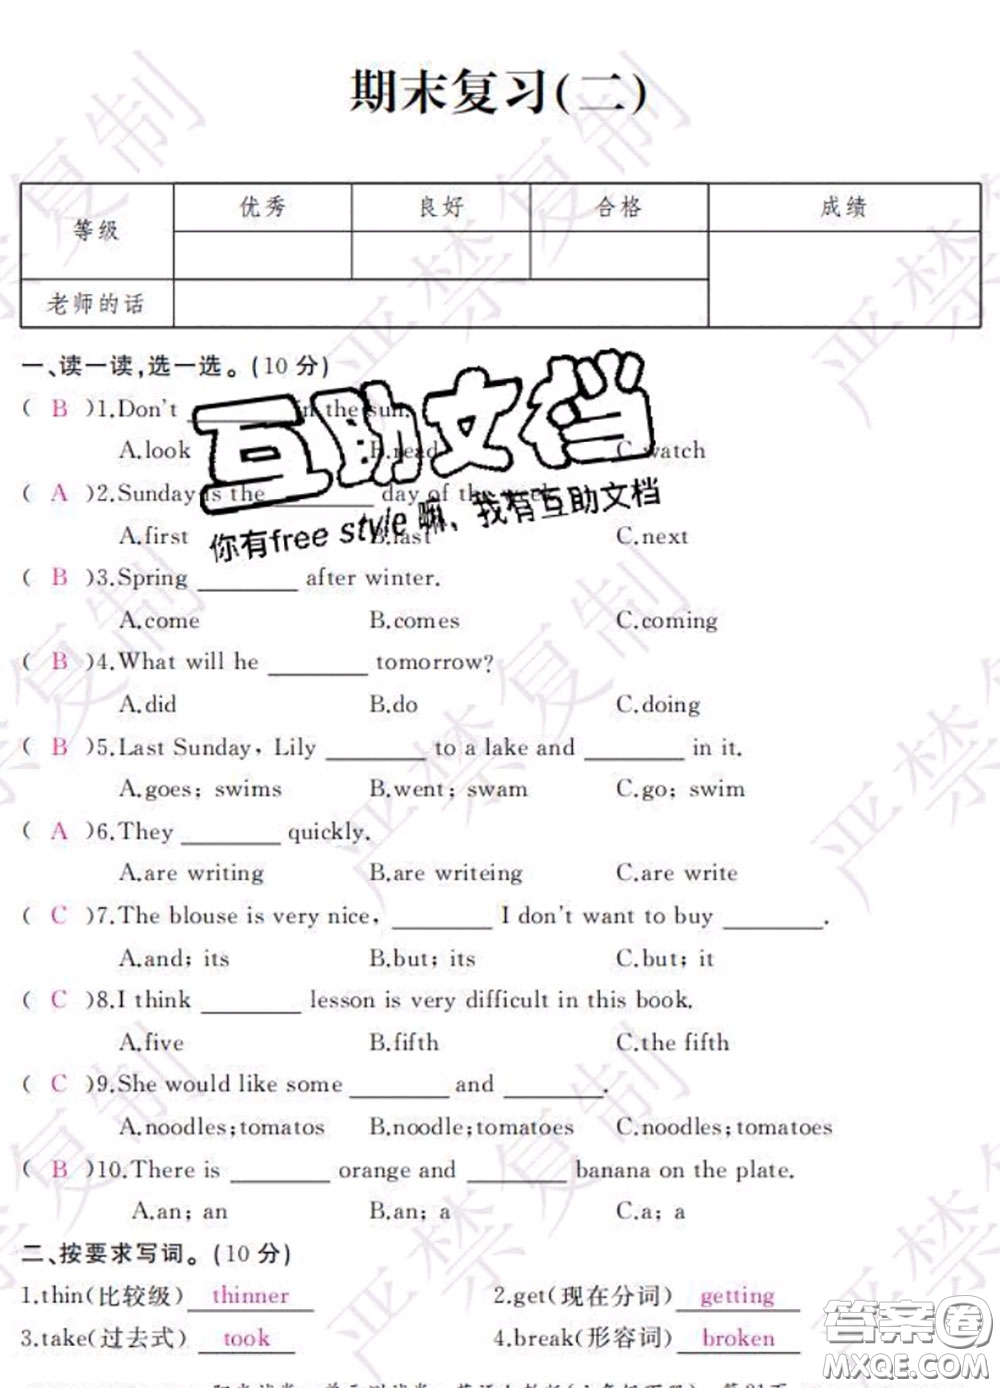 期末复习(二)
等级 优秀 良好 合格 成绩
老师的话
一、读一读,选一选。(10分)
( B )1.Don't ________ in the sun.
A.look B.read C.watch
( A )2.Sunday is the ________ day of the week.
A.first B.last C.next
( B )3.Spring ________ after winter.
A.come B.comes C.coming
( B )4.What will he ________ tomorrow?
A.did B.do C.doing
( B )5.Last Sunday, Lily ________ to a lake and ________ in it.
A.goes; swims B.went; swam C.go; swim
( A )6.They ________ quickly.
A.are writing B.are writeing C.are write
( C )7.The blouse is very nice, ________ I don't want to buy ________.
A.and; its B.but; its C.but; it
( C )8.I think ________ lesson is very difficult in this book.
A.five B.fifth C.the fifth
( C )9.She would like some ________ and ________.
A.noodles;tomatos B.noodle;tomatoes C.noodles;tomatoes
( B )10.There is ________ orange and ________ banana on the plate.
A.an; an B.an; a C.a; a
二、按要求写词。(10分)
1.thin(比较级) thinner 2.get(现在分词) getting
3.take(过去式) took 4.break(形容词) broken
互助文档
你有free style嘛、我有互助文档
严禁复制
答案圈
MXQE.COM